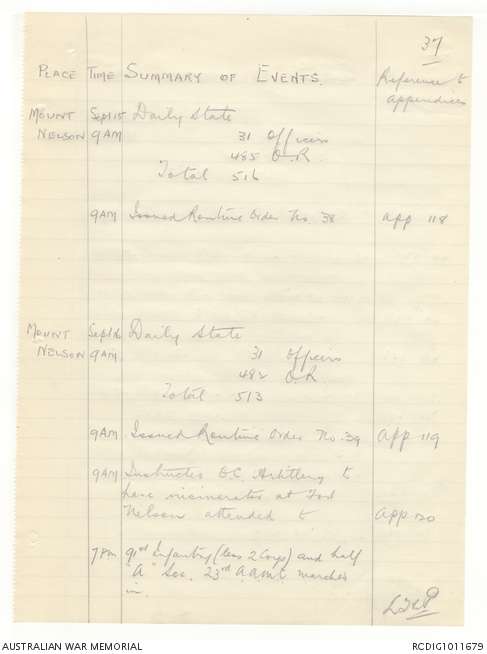 37
PLACE TIME SUMMARY OF EVENTS. Reference to
appendices
MOUNT Sept 15 Daily State
NELSON 9AM 31 Officers
485 O.R.
Total 516
9AM Issued Routine Order No. 38 app 118
MOUNT Sept 16 Daily State
NELSON 9AM 31 Officers
482 O.R.
Total 513
9AM Issued Routine Order No. 39 App 119
9AM Instructed O.C. Artillery to
have incinerator at Fort
Nelson attended to App 120
7PM 91st Infantry (less 2 Coys) and half
"A" Sec. 23rd A.A.M.C. marched
in.
AUSTRALIAN WAR MEMORIAL RCDIG1011679